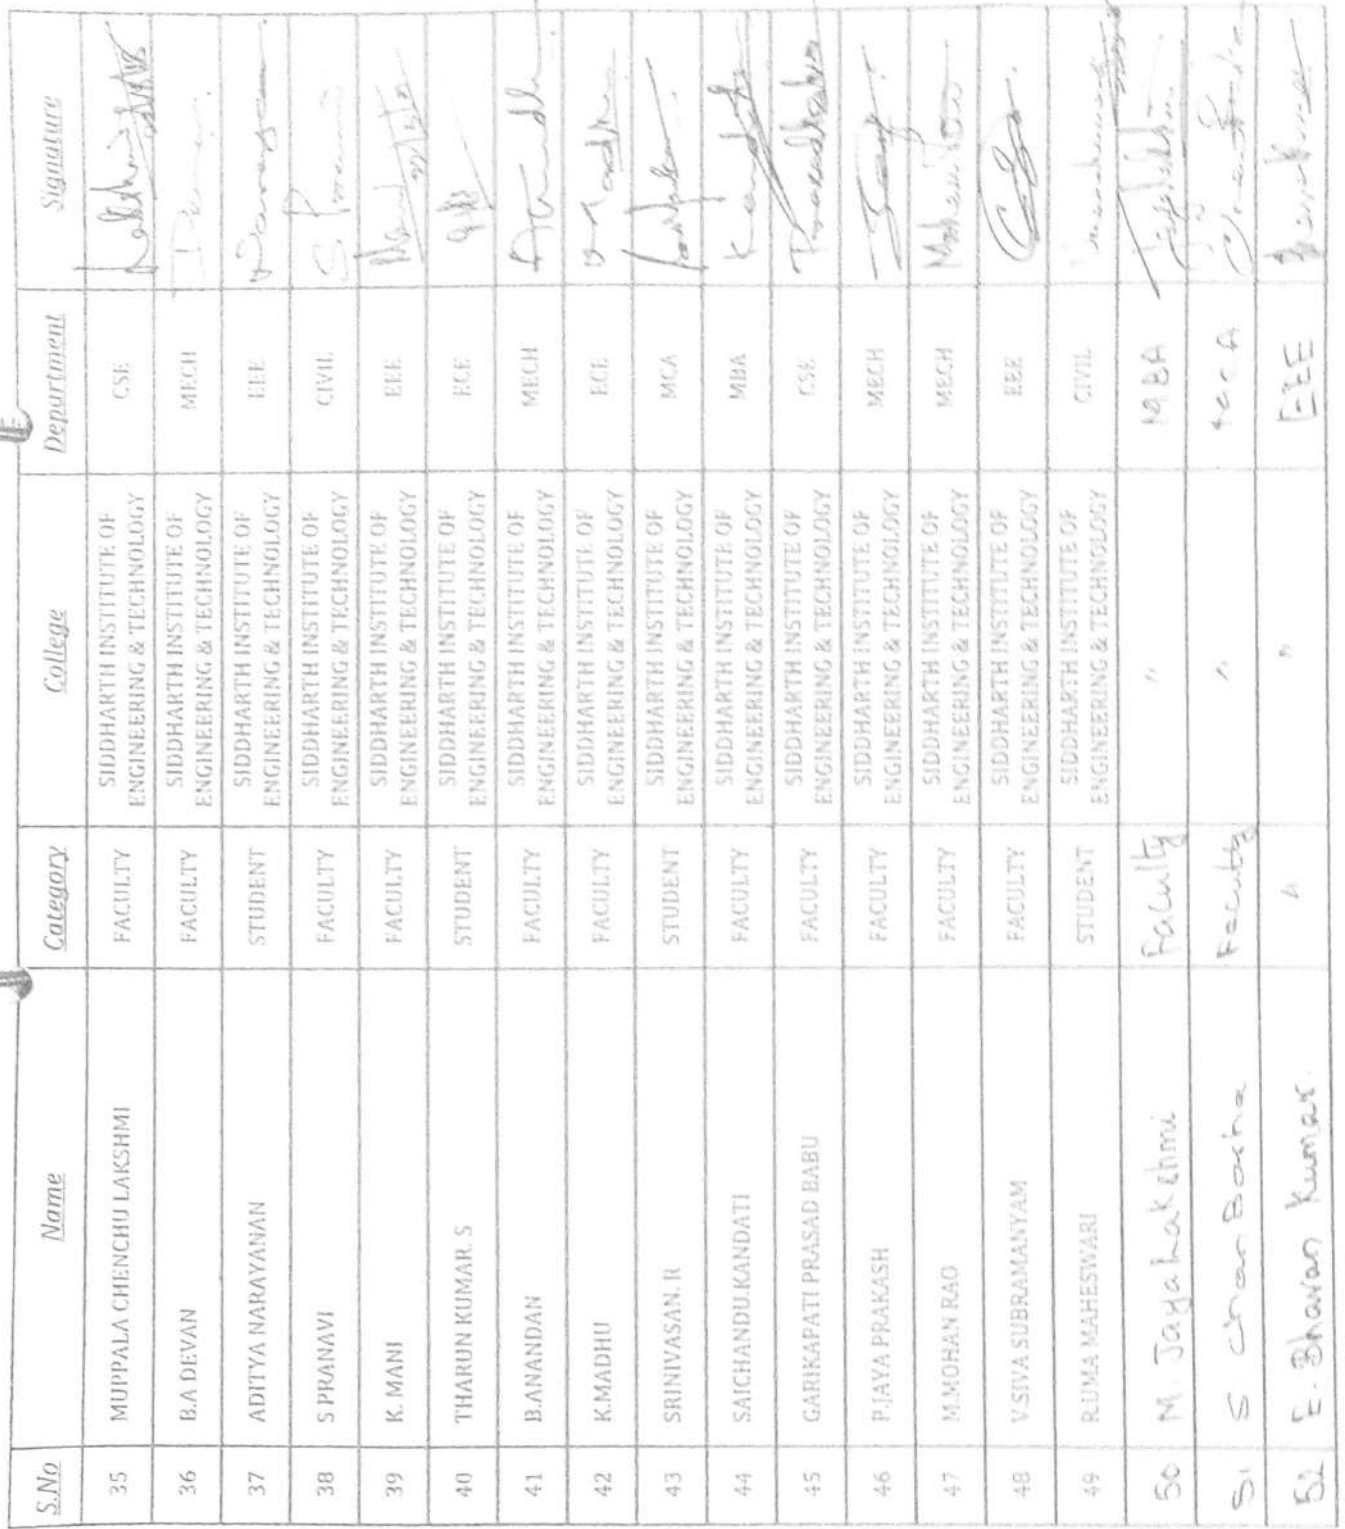 S.No Name Category College Department Signature
35 MUPPALA CHENCHU LAKSHMI FACULTY SIDDHARTH INSTITUTE OF
ENGINEERING & TECHNOLOGY CSE
36 B.A DEVAN FACULTY SIDDHARTH INSTITUTE OF
ENGINEERING & TECHNOLOGY MECH
37 ADITYA NARAYANAN STUDENT SIDDHARTH INSTITUTE OF
ENGINEERING & TECHNOLOGY EEE
38 S PRANAVI FACULTY SIDDHARTH INSTITUTE OF
ENGINEERING & TECHNOLOGY CIVIL
39 K. MANI FACULTY SIDDHARTH INSTITUTE OF
ENGINEERING & TECHNOLOGY EEE
40 THARUN KUMAR. S STUDENT SIDDHARTH INSTITUTE OF
ENGINEERING & TECHNOLOGY ECE
41 B.ANANDAN FACULTY SIDDHARTH INSTITUTE OF
ENGINEERING & TECHNOLOGY MECH
42 K.MADHU FACULTY SIDDHARTH INSTITUTE OF
ENGINEERING & TECHNOLOGY ECE
43 SRINIVASAN. R STUDENT SIDDHARTH INSTITUTE OF
ENGINEERING & TECHNOLOGY MCA
44 SAICHANDU.KANDATI FACULTY SIDDHARTH INSTITUTE OF
ENGINEERING & TECHNOLOGY MBA
45 GARIKAPATI PRASAD BABU FACULTY SIDDHARTH INSTITUTE OF
ENGINEERING & TECHNOLOGY CSE
46 P.JAYA PRAKASH FACULTY SIDDHARTH INSTITUTE OF
ENGINEERING & TECHNOLOGY MECH
47 M.MOHAN RAO FACULTY SIDDHARTH INSTITUTE OF
ENGINEERING & TECHNOLOGY MECH
48 V.SIVA SUBRAMANYAM FACULTY SIDDHARTH INSTITUTE OF
ENGINEERING & TECHNOLOGY EEE
49 R.UMA MAHESWARI STUDENT SIDDHARTH INSTITUTE OF
ENGINEERING & TECHNOLOGY CIVIL
50 M. Jayalakshmi Faculty " MBA
51 S Chan Basha Faculty " MCA
52 E. Bhavan Kumar. " " EEE